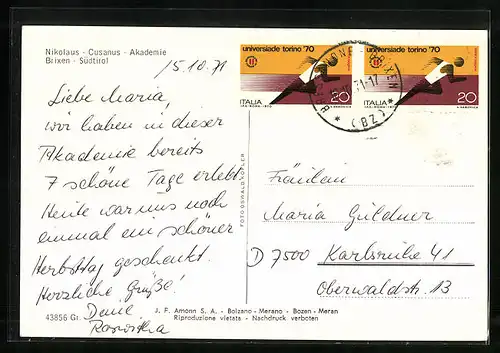 Nikolaus - Cusanus - Akademie
Brixen - Südtirol
15.10.71
Liebe Maria,
wir haben in dieser
Akademie bereits
7 schöne Tage erlebt.
Heute war uns noch
einmal ein schöner
Herbsttag geschenkt.
Herzliche Grüße!
Deine
Roswitha
43856 Gr.
FOTO OSWALD KOFLER
J. F. Amonn S. A. - Bolzano - Merano - Bozen - Meran
Riproduzione vietata - Nachdruck verboten
universiade torino '70
ITALIA
20
universiade torino '70
ITALIA
20
BRIXEN
(BZ)
Fräulein
Maria Güldner
D 7500 Karlsruhe 41
Oberwaldstr. 13